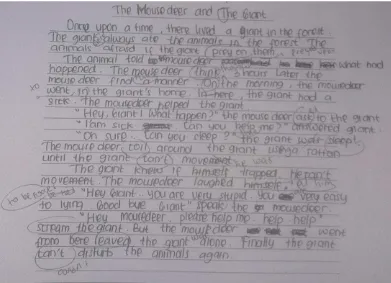 The Mouse deer and The Giant
Once upon a time, there lived a giant in the forest.
The giant always ate the animals in the forest. The
animals afraid if the giant prey on them.
The animal told mouse deer what had
happened. The mouse deer think 3 hours later the
mousedeer find a manner. On the morning, the mousedeer
went in the giant's home. the giant had a
sick. The mousedeer helped the giant.
"Hey, Giant! What happen?" the mouse deer ask to the giant
"I am sick Can you help me?" answered giant.
"Oh sure. Can you sleep?" the giant was sleept.
The mouse deer coil around the giant using rattan
until the giant can't movement
The giant knew if himself trapped, he can't
movement. The mousedeer laughed himself.
"Hey Giant you are very stupid you very easy
to lying. Good bye Giant" speak the mousedeer.
"Hey mousedeer, please help me, help help"
stream the giant. But the mouse deer went
from here leaved the giant alone. Finally the giant
can't disturb the animals again.